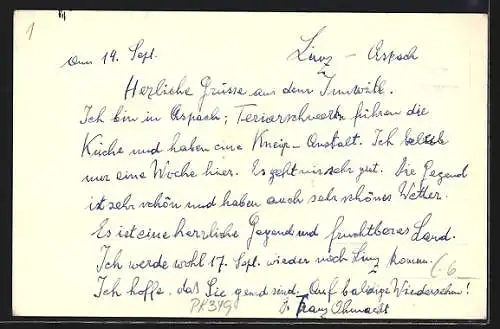 1
am 14. Sept. Linz – Aspach
Herzliche Grüsse aus dem Innviertl.
Ich bin in Aspach; führen die
Küche und haben eine Kneip-Anstalt. Ich bleibe
nur eine Woche hier. Es geht mir sehr gut. Die Gegend
ist sehr schön und haben auch sehr schönes Wetter.
Es ist eine herrliche Gegend und fruchtbares Land.
Ich werde wohl 17. Sept. wieder nach Linz kommen.
Ich hoffe, das Sie gesund sind. Auf baldige Wiedersehen!
(.6–
PK349
Franz